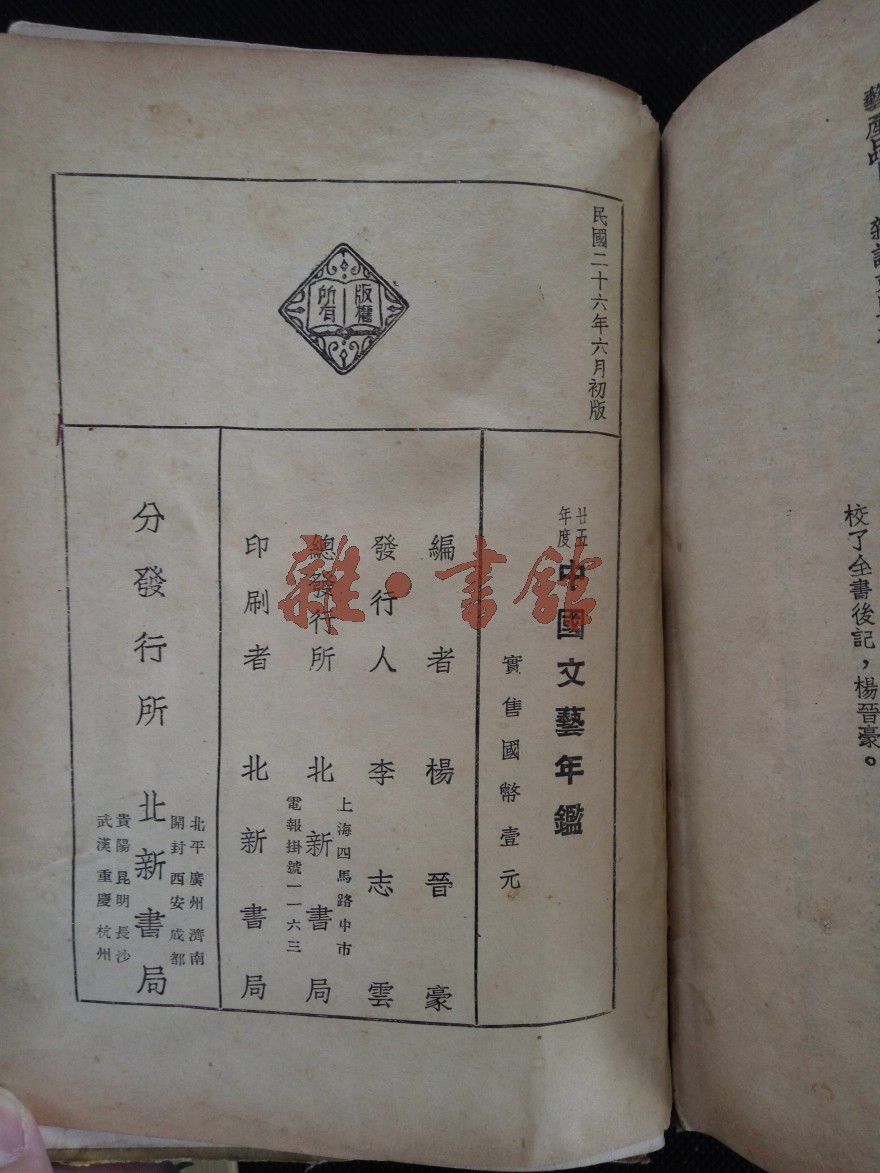 民國二十六年六月初版
版權
所有
廿五
年度
中國文藝年鑑
實售國幣壹元
編者 楊晉豪
發行人 李志雲
總發行所 北新書局
上海四馬路中市
電報掛號一一六三
印刷者 北新書局
分發行所 北新書局
北平 廣州 濟南
開封 西安 成都
貴陽 昆明 長沙
武漢 重慶 杭州
校了全書後記，楊晉豪。
雜·書館